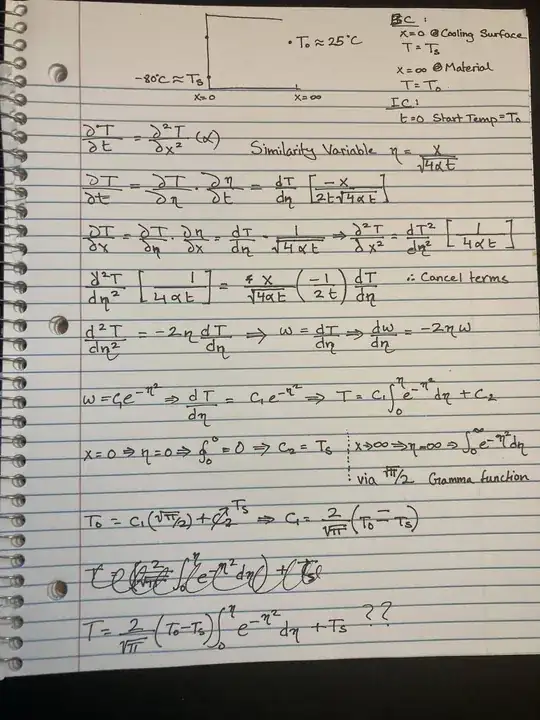 BC:
x=0 @ Cooling Surface
T = Ts
x=∞ @ Material
T = To
IC:
t=0 Start Temp = To
• To ≈ 25°C
-80°C ≈ Ts
x=0 x=∞
∂T/∂t = ∂²T/∂x² (α) Similarity Variable η = x/√4αt
∂T/∂t = ∂T/∂η · ∂η/∂t = dT/dη [-x/2t√4αt]
∂T/∂x = ∂T/∂η · ∂η/∂x = dT/dη · 1/√4αt ⇒ ∂²T/∂x² = dT²/dη² [1/4αt]
d²T/dη² [1/4αt] = x/√4αt (-1/2t) dT/dη ∴ Cancel terms
d²T/dη² = -2η dT/dη ⇒ w = dT/dη ⇒ dw/dη = -2ηw
w = C₁e^-η² ⇒ dT/dη = C₁e^-η² ⇒ T = C₁∫₀^η e^-η² dη + C₂
x=0 ⇒ η=0 ⇒ ∮₀⁰ = 0 ⇒ C₂ = Ts
x→∞ ⇒ η=∞ ⇒ ∫₀^∞ e^-η² dη
via √π/2 Gamma function
To = C₁(√π/2) + C₂ Ts ⇒ C₁ = 2/√π (To - Ts)
T = 2/√π (To-Ts) ∫₀^η e^-η² dη + Ts ??